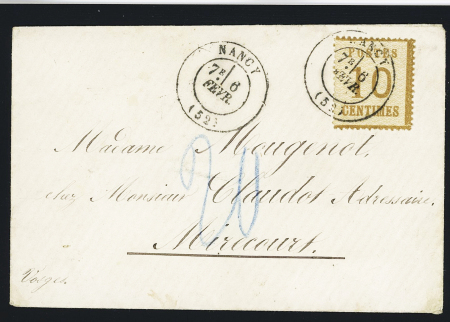 NANCY
7E 6
FEVR.
(52)
NANCY
7E 6
FEVR.
(52)
POSTES
10
CENTIMES
Madame Mougenot,
chez Monsieur Claudot Adressaire,
20
Mirecourt.
Vosges